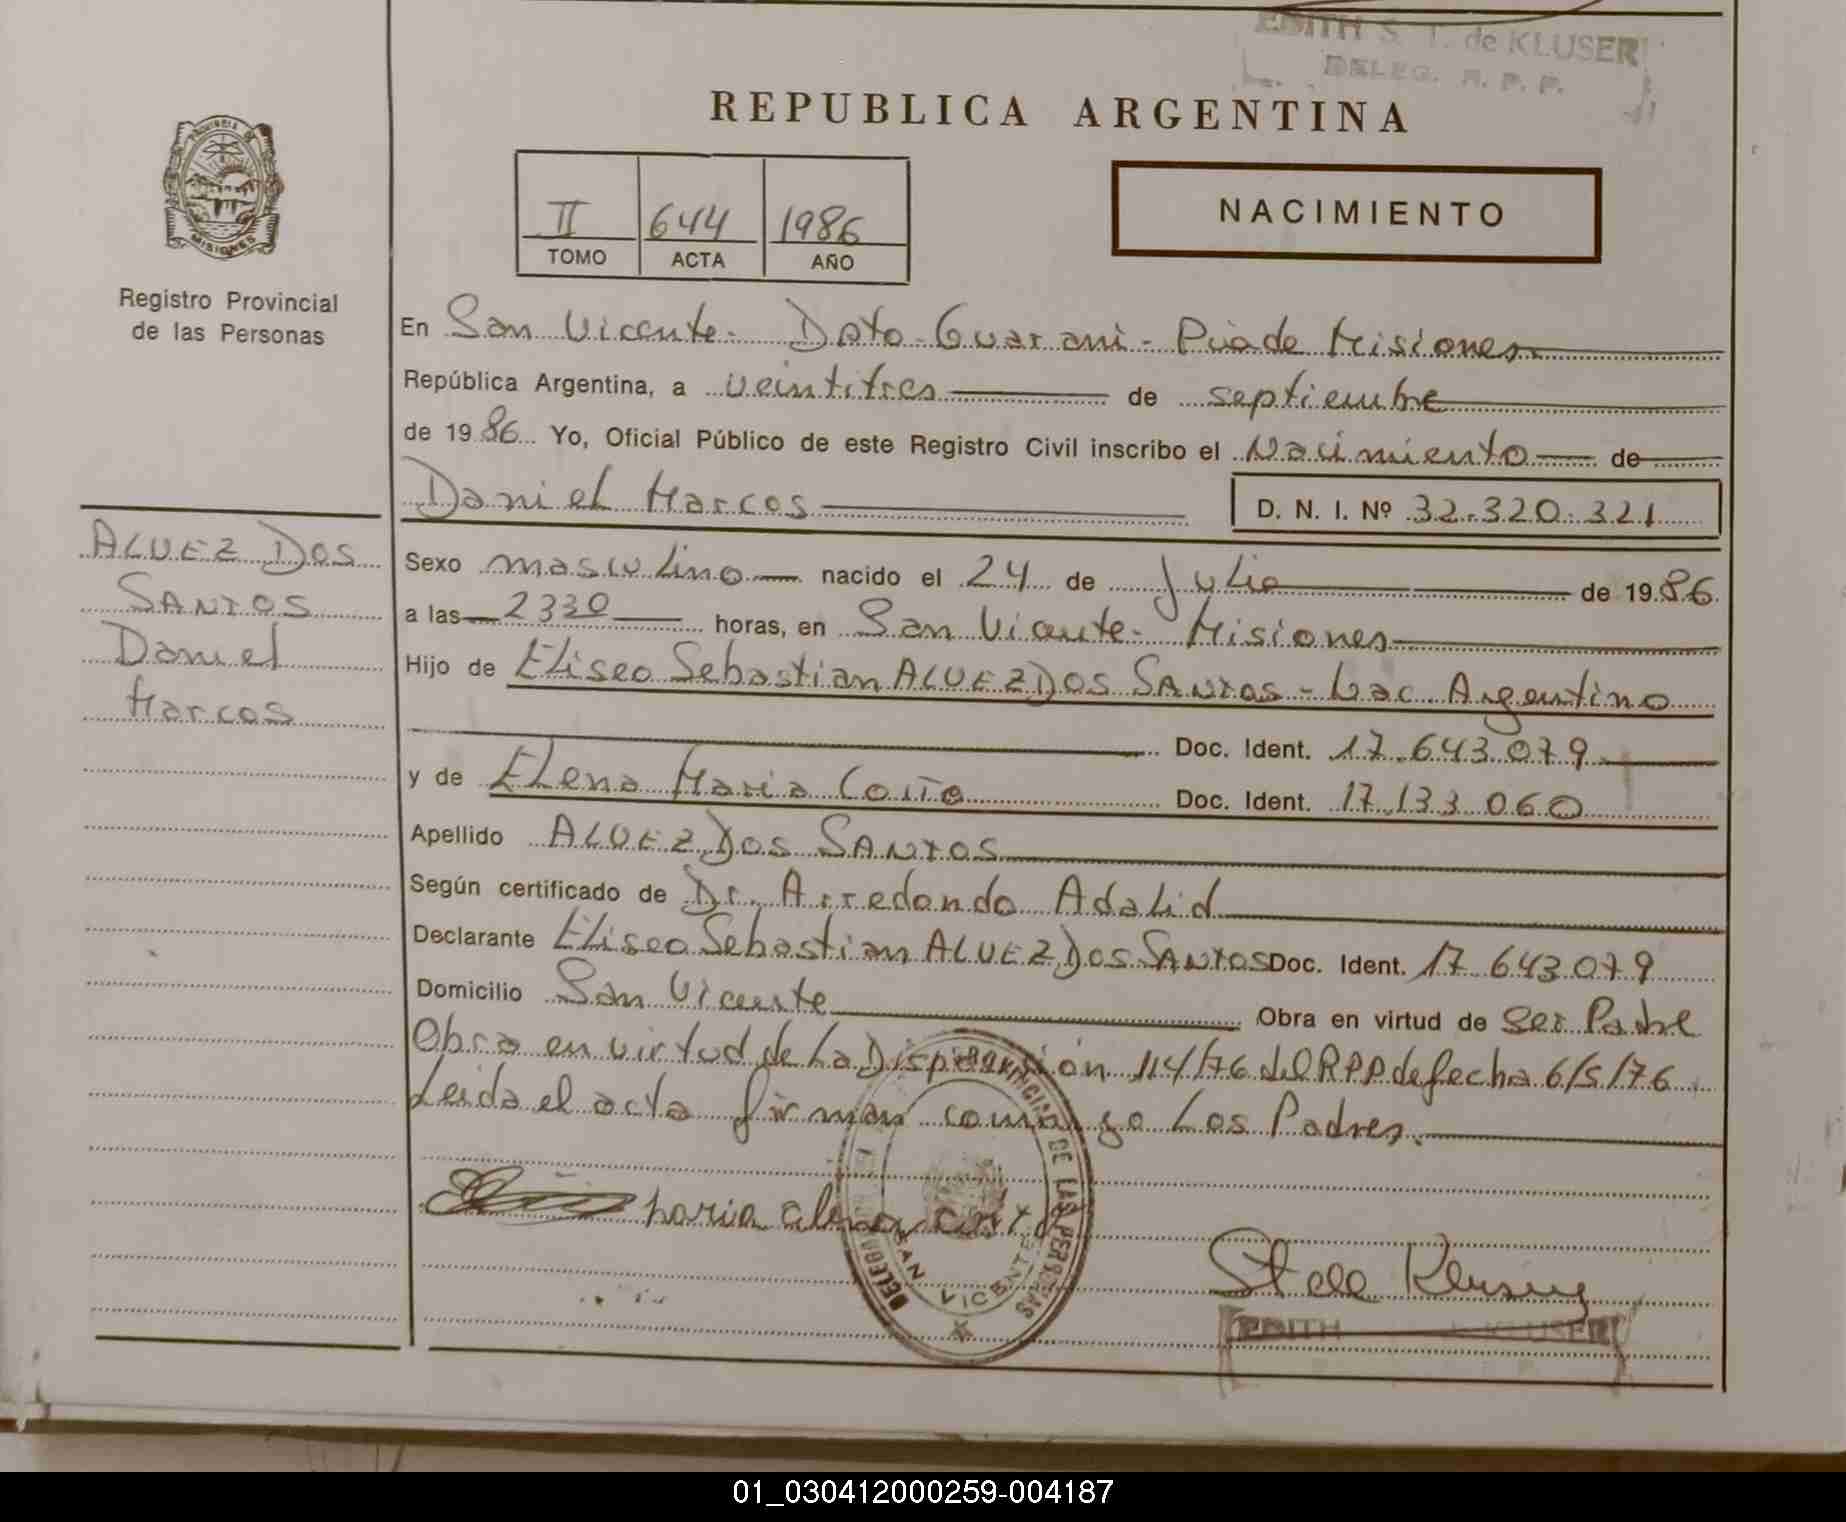 EDITH S. T. de KLUSER
DELEG. R. P. P.
REPUBLICA ARGENTINA
PROVINCIA DE
MISIONES
II 644 1986
TOMO ACTA AÑO
NACIMIENTO
Registro Provincial
de las Personas
En San Vicente - Dpto Guarani - Pcia de Misiones
República Argentina, a veintitres de septiembre
de 1986 Yo, Oficial Público de este Registro Civil inscribo el Nacimiento de
Daniel Marcos D. N. I. Nº 32.320.321
ALVEZ DOS
SANTOS
Daniel
Marcos
Sexo masculino nacido el 24 de Julio de 1986
a las 2330 horas, en San Vicente - Misiones
Hijo de Eliseo Sebastian ALVEZ DOS SANTOS - Nac. Argentino
Doc. Ident. 17.643.079
y de Elena Maria Doc. Ident. 17.133.060
Apellido ALVEZ DOS SANTOS
Según certificado de Dr. Arredondo Adalid
Declarante Eliseo Sebastian ALVEZ DOS SANTOS Doc. Ident. 17.643.079
Domicilio San Vicente Obra en virtud de ser Padre
Obra en virtud de La Disposición 114/76 del RPP de fecha 6/5/76
Leida el acta firman conmigo Los Padres.
maria elena
DELEGACION PROVINCIAL DE LAS PERSONAS
SAN VICENTE
St de Kluser
EDITH KLUSER
01_030412000259-004187